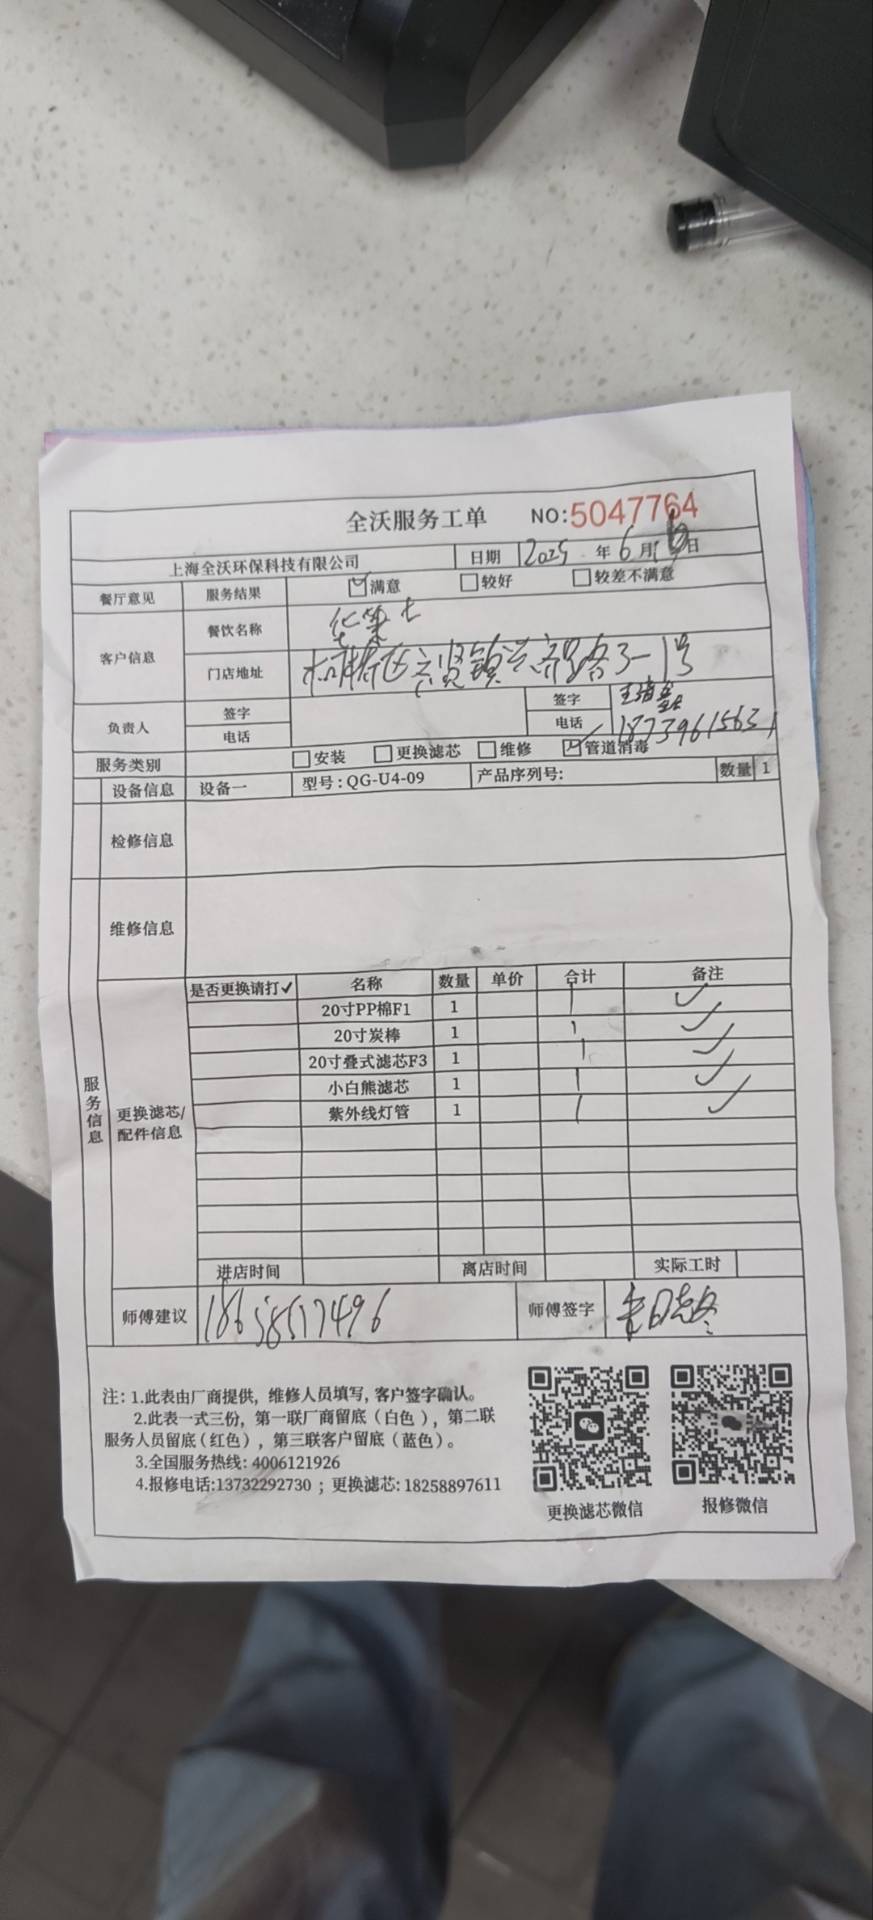 全沃服务工单 NO:5047764
上海全沃环保科技有限公司 日期 2025 年 6 月 日
餐厅意见 服务结果 ☑满意 □较好 □较差不满意
客户信息 餐饮名称 华莱士
门店地址 号
负责人 签字 签字
电话 电话 18739615631
服务类别 □安装 □更换滤芯 □维修 ☑管道消毒
设备信息 设备一 型号:QG-U4-09 产品序列号: 数量 1
检修信息
维修信息
服务信息
更换滤芯/配件信息
是否更换请打✓ 名称 数量 单价 合计 备注
20寸PP棉F1 1 1 ✓
20寸炭棒 1 1 ✓
20寸叠式滤芯F3 1 1 ✓
小白熊滤芯 1 1 ✓
紫外线灯管 1 1 ✓
进店时间 离店时间 实际工时
师傅建议 18658517496 师傅签字
注: 1.此表由厂商提供, 维修人员填写, 客户签字确认。
2.此表一式三份, 第一联厂商留底(白色), 第二联
服务人员留底(红色), 第三联客户留底(蓝色)。
3.全国服务热线: 4006121926
4.报修电话:13732292730 ; 更换滤芯: 18258897611
更换滤芯微信 报修微信